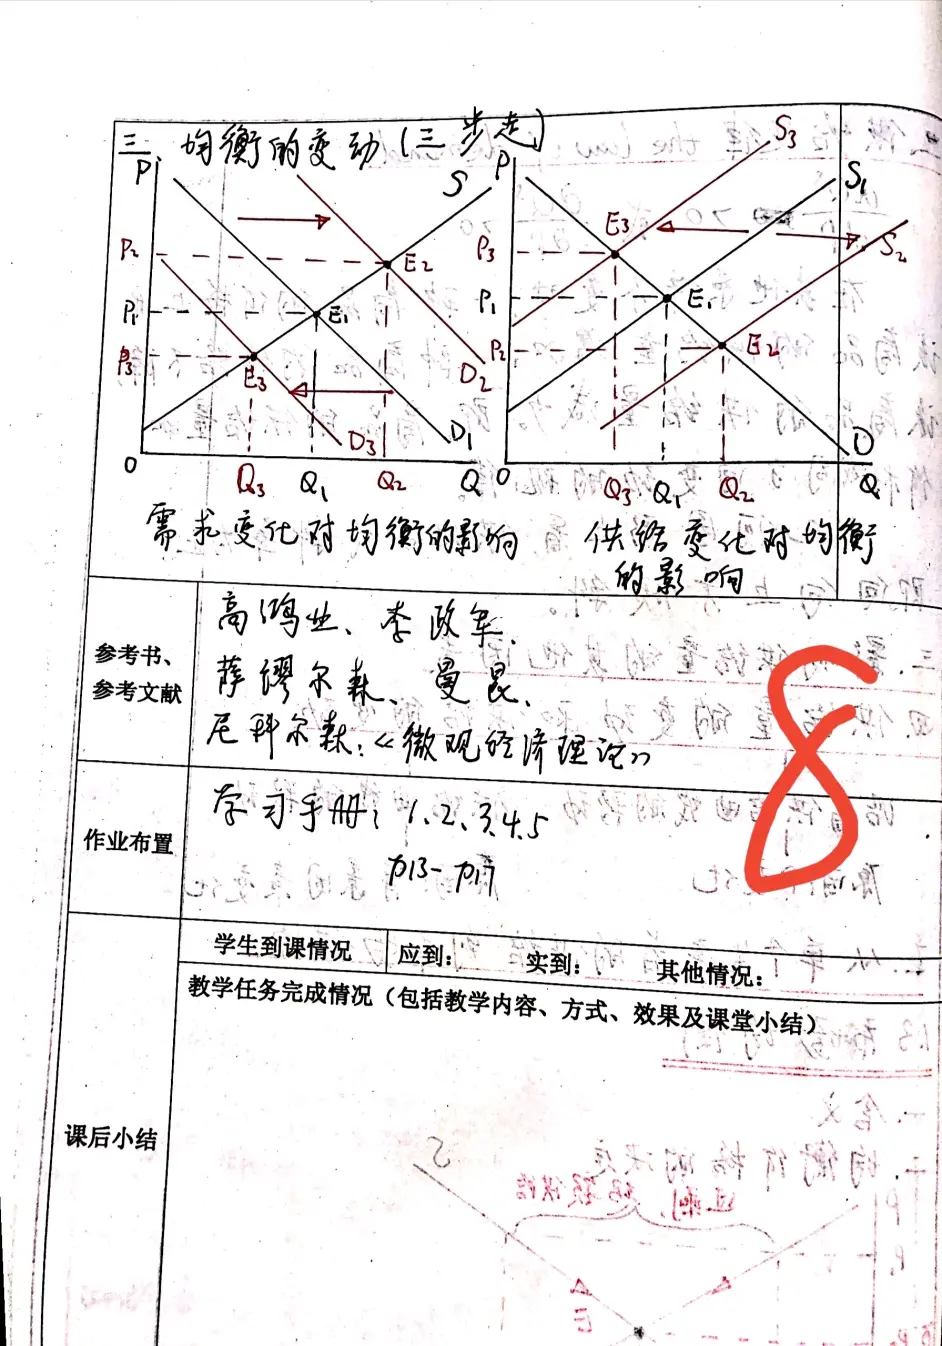 三、均衡的变动(三步走)
P
S
P2
P1
P3
E2
E1
E3
D2
D1
D3
O
Q3
Q1
Q2
Q
需求变化对均衡的影响
P
S3
S1
S2
P3
P1
P2
E3
E1
E2
D
O
Q3
Q1
Q2
Q
供给变化对均衡
的影响
参考书、
参考文献
高鸿业、李政军、
萨缪尔森、曼昆、
尼科尔森:《微观经济理论》
作业布置
学习手册:1、2、3、4、5
P13-P17
8
课后小结
学生到课情况
应到:
实到:
其他情况:
教学任务完成情况(包括教学内容、方式、效果及课堂小结)